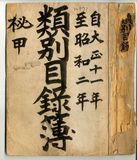 自大正十一年
至昭和二年
類別目録簿
秘甲